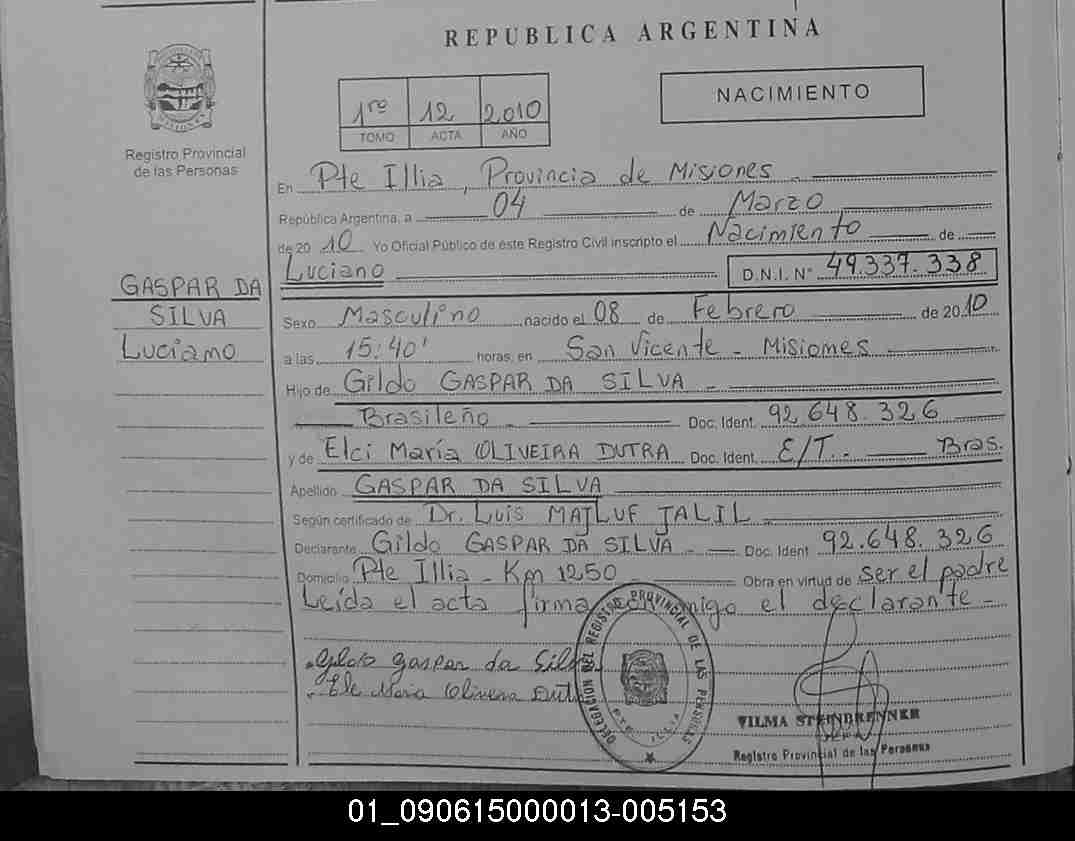 REPUBLICA ARGENTINA
MISIONES
Registro Provincial
de las Personas
1ro 12 2010
TOMO ACTA AÑO
NACIMIENTO
En Pte Illia, Provincia de Misiones -
República Argentina, a 04 de Marzo
de 20 10 Yo Oficial Público de este Registro Civil inscripto el Nacimiento de
Luciano D.N.I. N° 49.337.338
GASPAR DA
SILVA
Luciano
Sexo Masculino nacido el 08 de Febrero de 20 10
a las 15:40' horas, en San Vicente - Misiones
Hijo de Gildo GASPAR DA SILVA -
Brasileño Doc. Ident. 92.648.326
y de Elci María OLIVEIRA DUTRA Doc. Ident. E/T.- Bras.
Apellido GASPAR DA SILVA
Según certificado de Dr. Luis MAJLUF JALIL
Declarante Gildo GASPAR DA SILVA - Doc. Ident 92.648.326
Domicilio Pte Illia - Km 1250 Obra en virtud de ser el padre
Leída el acta firma conmigo el declarante -
Gildo Gaspar da Silva
Maria Oliveira Dut
DELEGACION DEL REGISTRO PROVINCIAL DE LAS PERSONAS
PTE. ILLIA
VILMA STEINBRENNER
JEFA
Registro Provincial de las Personas
01_090615000013-005153